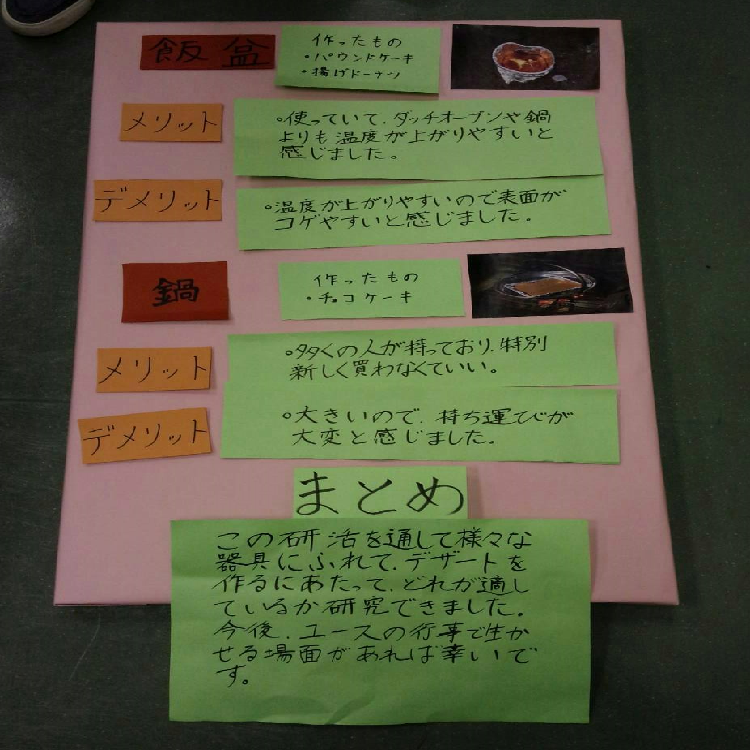 飯盒
作ったもの
・パウンドケーキ
・揚げドーナツ
メリット
○使っていて、ダッチオーブンや鍋
よりも温度が上がりやすいと
感じました。
デメリット
○温度が上がりやすいので表面が
コゲやすいと感じました。
鍋
作ったもの
・チョコケーキ
メリット
○多くの人が持っており、特別
新しく買わなくていい。
デメリット
○大きいので、持ち運びが
大変と感じました。
まとめ
この研活を通して様々な
器具にふれて、デザートを
作るにあたって、どれが適し
ているか研究できました。
今後、ユースの行事で生か
せる場面があれば幸いで
す。